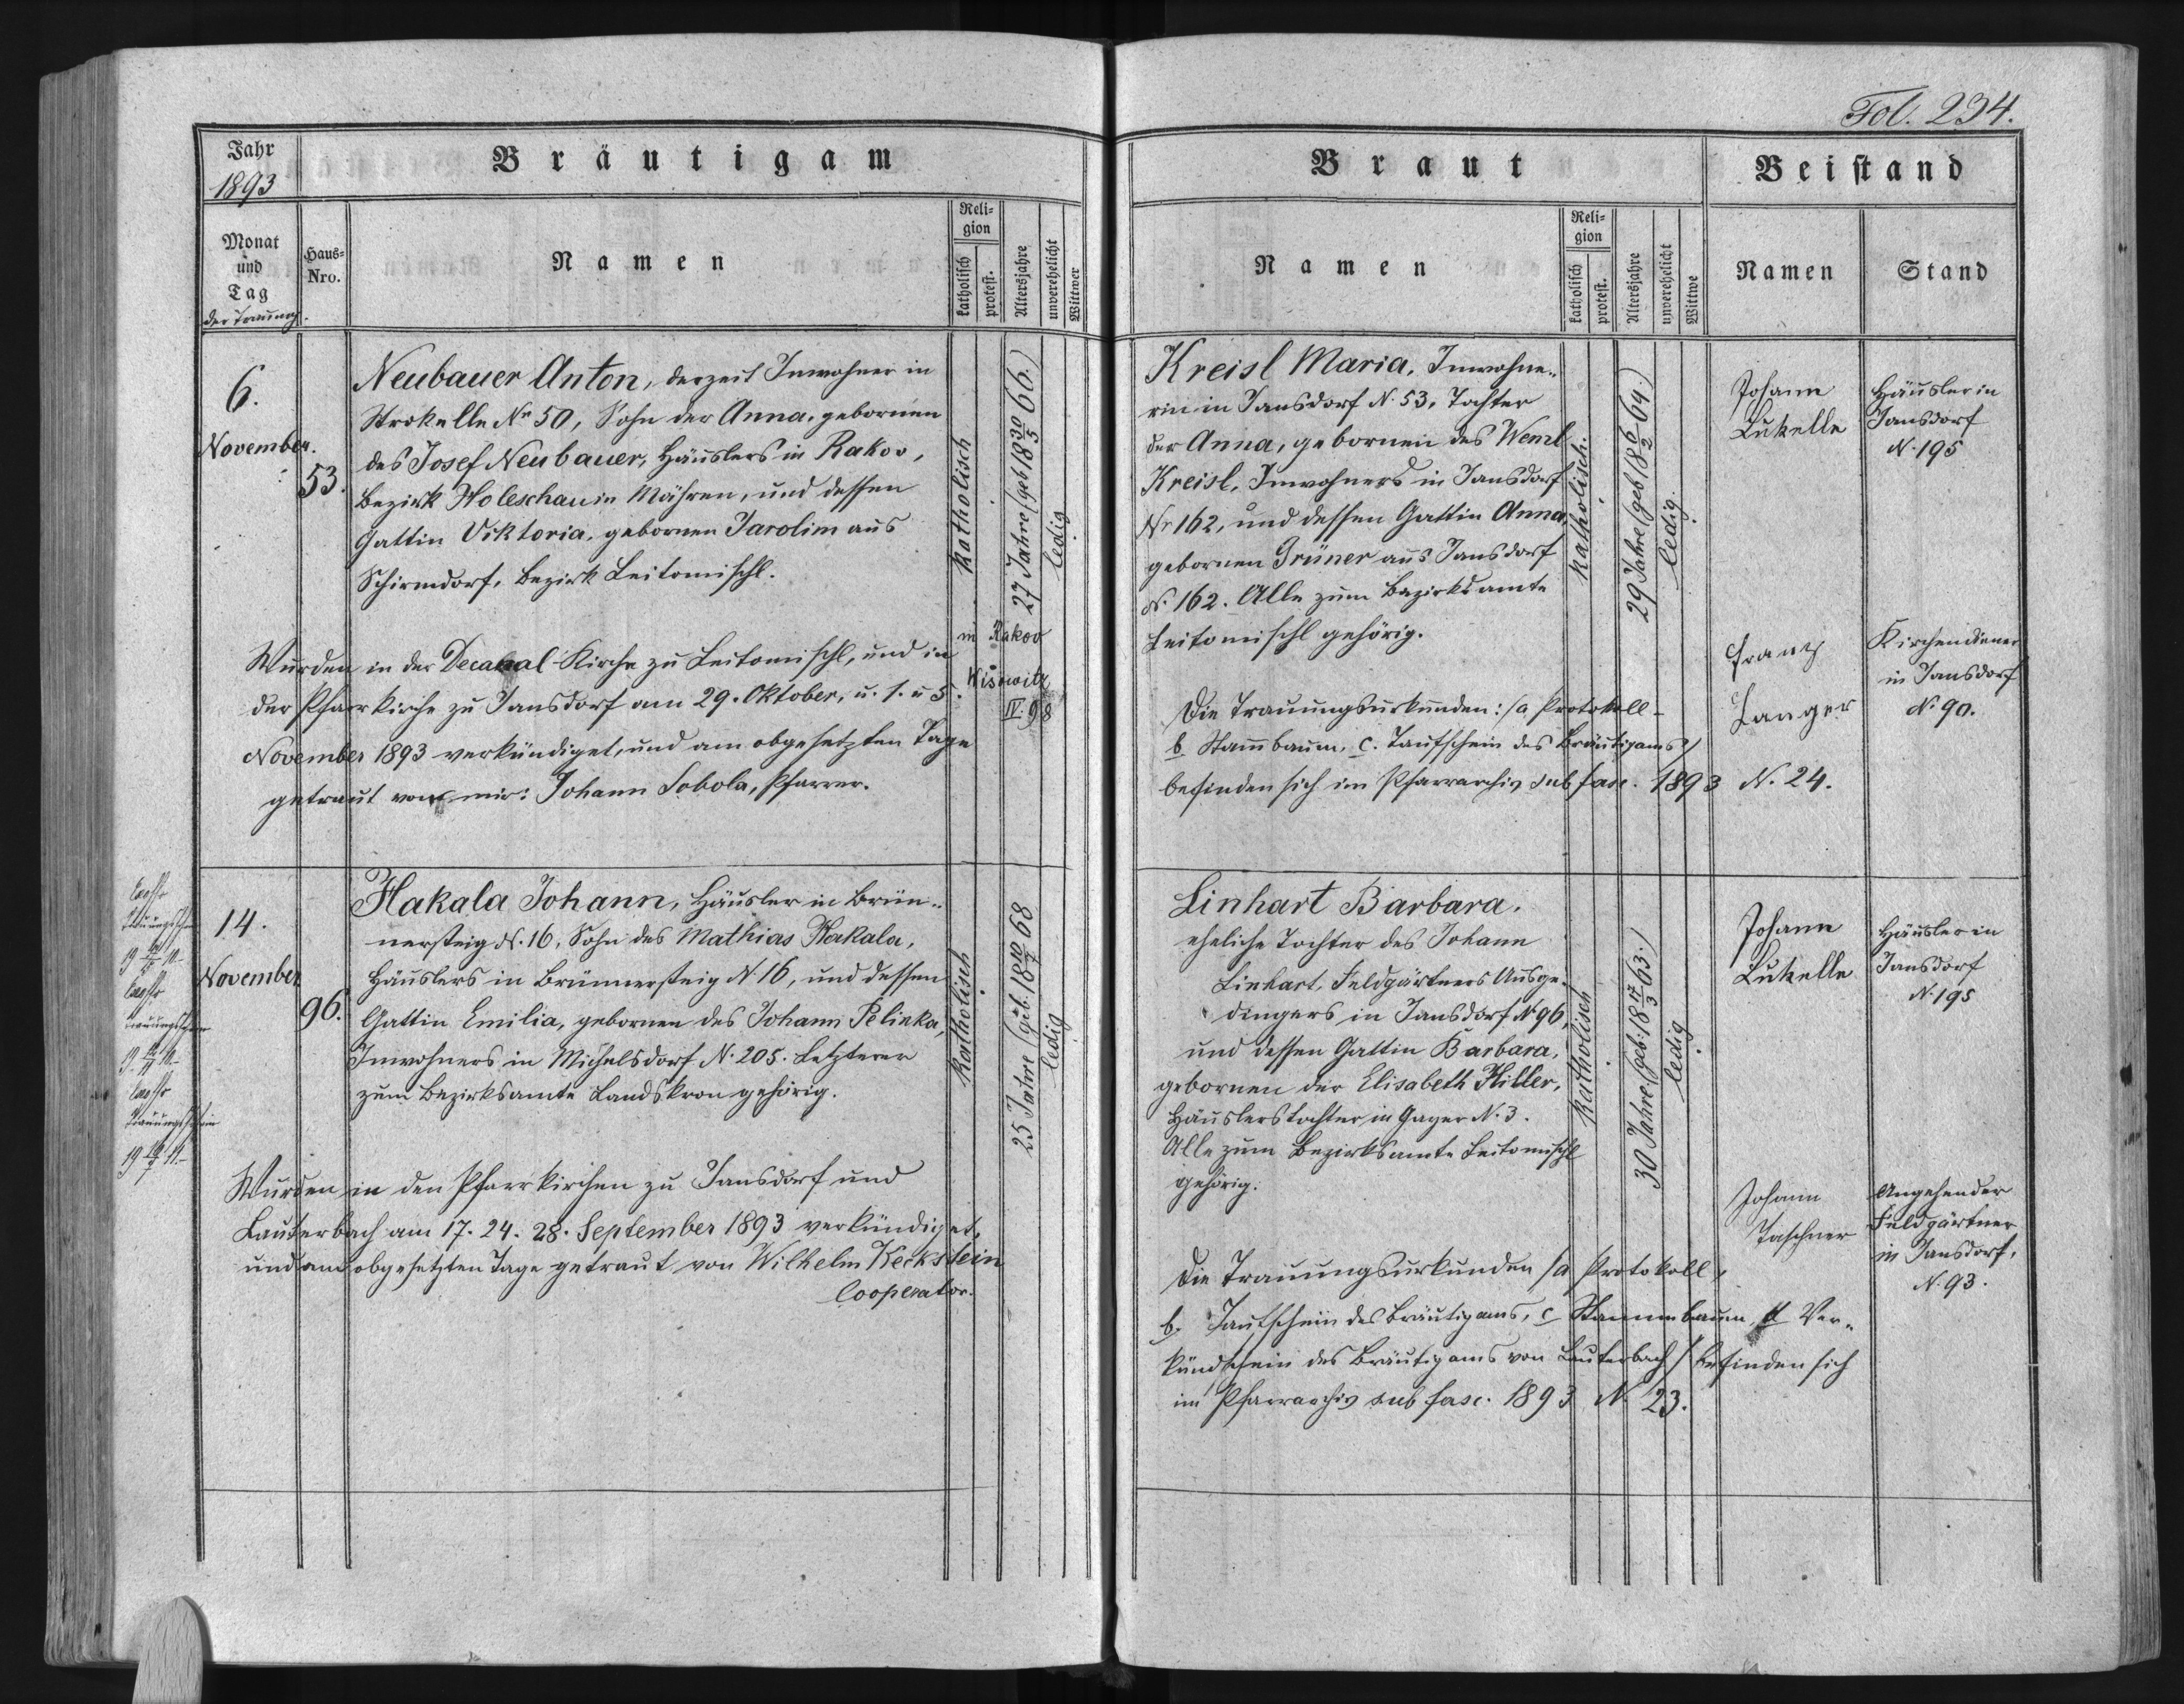 Fol. 234.
Jahr
1893
Bräutigam
Monat
und
Tag
der Trauung.
Haus-
Nro.
Namen
Reli-
gion
katholisch
protest.
Altersjahre
unverehelicht
Wittwer
Braut
Namen
Reli-
gion
katholisch
protest.
Altersjahre
unverehelicht
Wittwe
Beistand
Namen
Stand
6.
November.
53.
Neubauer Anton, derzeit Inwohner in
Strokelle Nr 50, Sohn der Anna, gebornen
des Josef Neubauer, Häuslers in Rakov,
Bezirk Holeschau in Mähren, und dessen
Gattin Viktoria, gebornen Jarolim aus
Schirmdorf, Bezirk Leitomischl.
katholisch
27 Jahre (geb 18 30/5 66.)
ledig
in Rakov
Wisowitz
IV. 98
Wurden in der Decanal-Kirche zu Leitomischl, und in
der Pfarrkirche zu Jansdorf am 29. Oktober, u. 1. u 5.
November 1893 verkündiget, und am obgesetzten Tage
getraut von mir: Johann Sobola, Pfarrer.
Kreisl Maria, Inwohne-
rin in Jansdorf N. 53, Tochter
der Anna, gebornen des Wenzl
Kreisl, Inwohners in Jansdorf
Nr 162, und dessen Gattin Anna,
gebornen Grüner aus Jansdorf
N. 162. Alle zum Bezirksamte
Leitomischl gehörig.
katholisch.
29 Jahre (geb 18 6/2 64.)
ledig.
Die Trauungsurkunden: /a Protokoll-
b Stammbaum, c. Taufschein des Bräutigams/
befinden sich im Pfarrarchiv sub fasc. 1893 N. 24.
Johann
Lukelle
Häusler in
Jansdorf
N. 195
Franz
Langer
Kirchendiener
in Jansdorf
N. 90.
14.
November
96.
Hakala Johann, Häusler in Brün-
nersteig N. 16, Sohn des Mathias Hakala,
Häuslers in Brünnersteig N. 16, und dessen
Gattin Emilia, gebornen des Johann Pelinka,
Inwohners in Michelsdorf N. 205. Letzterer
zum Bezirksamte Landskron gehörig.
katholisch
25 Jahre (geb. 18 10/7 68
ledig
Wurden in den Pfarrkirchen zu Jansdorf und
Lauterbach am 17. 24. 28. September 1893 verkündiget,
und am obgesetzten Tage getraut von Wilhelm Keckstein
Cooperator.
Linhart Barbara,
eheliche Tochter des Johann
Linhart, Feldgärtners Ausge-
dingers in Jansdorf N 96,
und dessen Gattin Barbara,
gebornen der Elisabeth Hiller,
Häuslerstochter in Gayer N. 3.
Alle zum Bezirksamte Leitomischl
gehörig.
katholisch
30 Jahre (geb: 18 17/3 63.)
ledig
Die Trauungsurkunden /a Protokoll,
b. Taufschein des Bräutigams, c Stammbaum, d Ver-
kündschein des Bräutigams von Lauterbach / befinden sich
im Pfarrarchiv sub fasc. 1893 N. 23.
Johann
Lukelle
Häusler in
Jansdorf
N. 195
Johann
Taschner
Angehender
Feldgärtner
in Jansdorf,
N. 93.